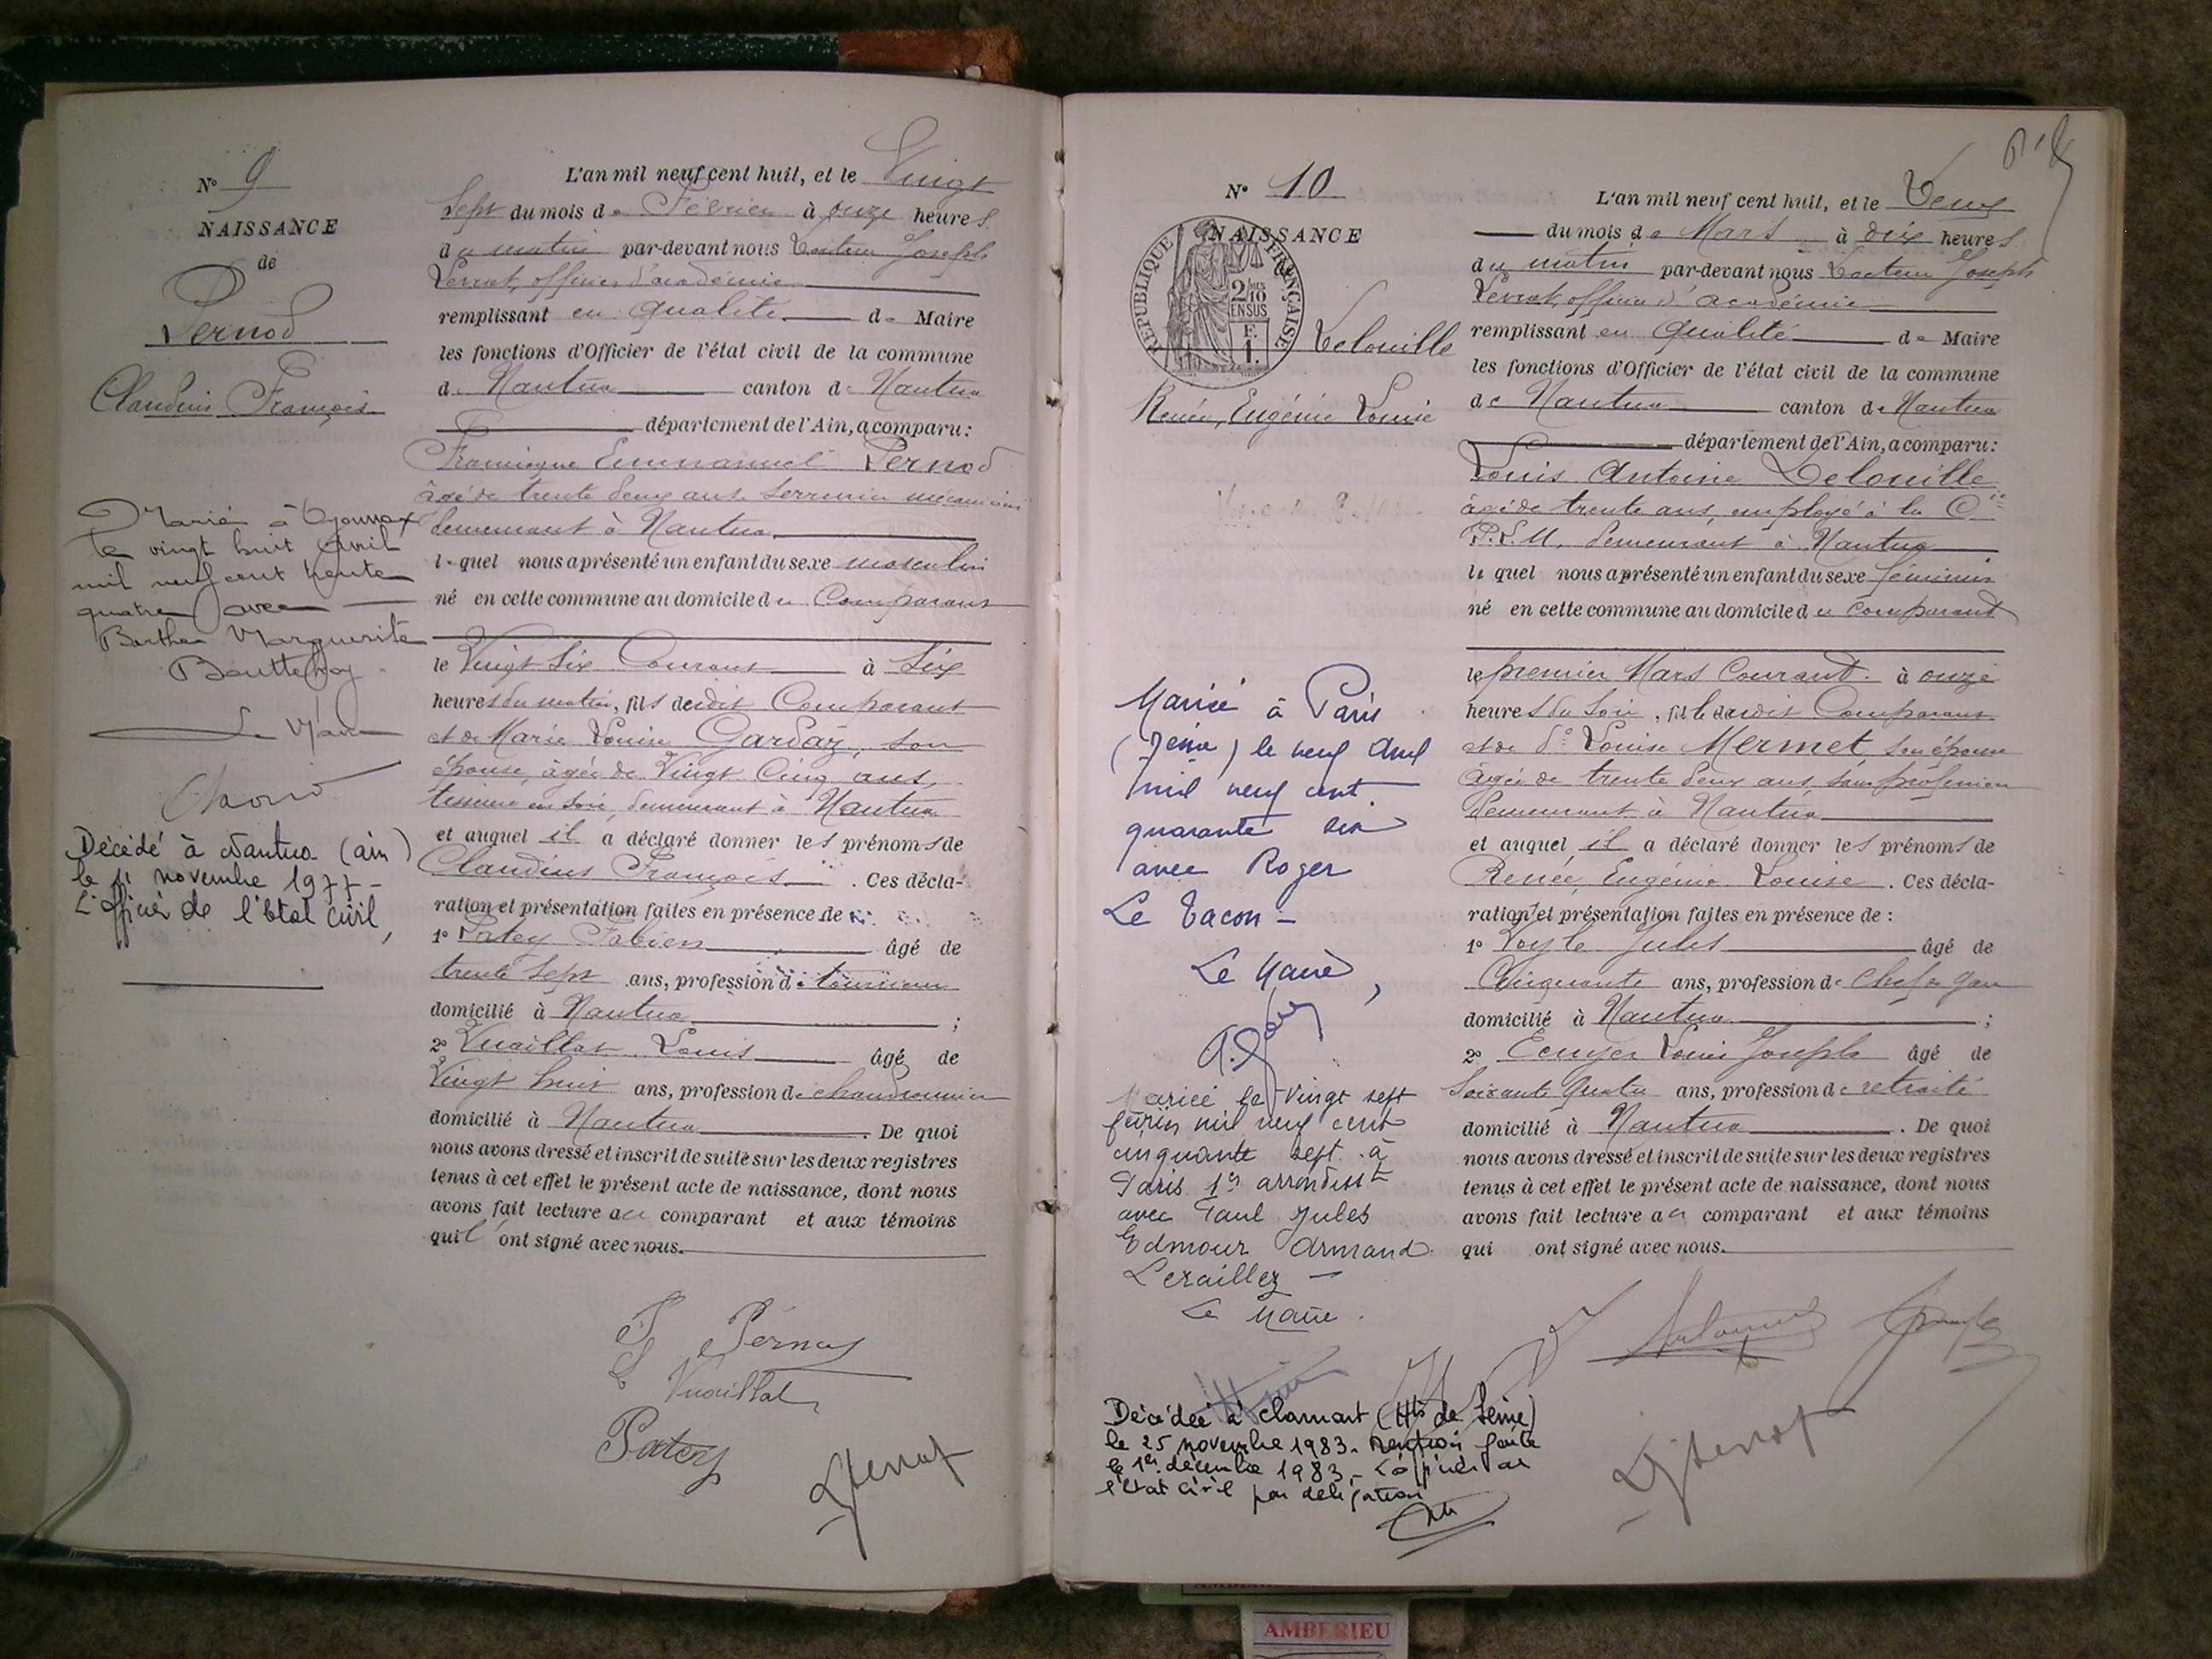 N° 9
NAISSANCE
de
Pernod
Claudius François
Marié à Oyonnax
le vingt huit avril
mil neuf cent trente
quatre avec
Berthe Marguerite
Le Maire
Décédé à Nantua (ain)
le 11 novembre 1977-
L'officier de l'état civil,
L'an mil neuf cent huit, et le Vingt
sept du mois de Février à onze heures
du matin par-devant nous Docteur Joseph
officier d'académie
remplissant en qualité de Maire
les fonctions d'Officier de l'état civil de la commune
de Nantua canton de Nantua
département de l'Ain, a comparu:
Emmanuel Pernod
âgé de trente deux ans serrurier mécanicien
demeurant à Nantua
lequel nous a présenté un enfant du sexe masculin
né en cette commune au domicile du Comparant
le Vingt six Courant à six
heures du matin, fils dudit Comparant
et de Marie Louise Gardaz, son
épouse, âgée de Vingt Cinq ans,
tisseuse en soie, demeurant à Nantua
et auquel il a déclaré donner les prénoms de
Claudius François . Ces décla-
ration et présentation faites en présence de
1° Patey Fabien âgé de
trente sept ans, profession de tourneur
domicilié à Nantua ;
2° Vuaillat Louis âgé de
Vingt huit ans, profession de chaudronnier
domicilié à Nantua . De quoi
nous avons dressé et inscrit de suite sur les deux registres
tenus à cet effet le présent acte de naissance, dont nous
avons fait lecture au comparant et aux témoins
qui ont signé avec nous.
Pernod
Vuaillat
Patey
N° 10
NAISSANCE
RÉPUBLIQUE FRANÇAISE
2/10 EN SUS
F.
1.
Delouille
Renée, Eugénie Louise
Mariée à Paris
(7eme) le neuf Avril
mil neuf cent
quarante six
avec Roger
Le Tacon -
Le Maire,
Mariée le vingt sept
juin mil neuf cent
cinquante sept à
Paris 1er arrondisst
avec Paul Jules
Edmour Armand
Leraillez -
Le Maire.
Décédée à Clamart (Hts de Seine)
le 25 novembre 1983. Mention faite
le 1er décembre 1983, - L'officier de
l'état civil par délégation
L'an mil neuf cent huit, et le Deux
du mois de Mars à dix heures
du matin par-devant nous Docteur Joseph
officier d'académie
remplissant en qualité de Maire
les fonctions d'Officier de l'état civil de la commune
de Nantua canton de Nantua
département de l'Ain, a comparu:
Louis Antoine Delouille
âgé de trente ans, employé à la Cie
P.L.M. demeurant à Nantua
lequel nous a présenté un enfant du sexe féminin
né en cette commune au domicile du comparant
le premier Mars Courant à onze
heures du soir, fille dudit Comparant
et de De Louise Mermet, son épouse
âgée de trente deux ans, sans profession
demeurant à Nantua
et auquel il a déclaré donner les prénoms de
Renée, Eugénie Louise . Ces décla-
ration et présentation faites en présence de :
1° Jules âgé de
Cinquante ans, profession de chef de gare
domicilié à Nantua ;
2° Ecuyer Louis Joseph âgé de
soixante quatre ans, profession de retraité
domicilié à Nantua . De quoi
nous avons dressé et inscrit de suite sur les deux registres
tenus à cet effet le présent acte de naissance, dont nous
avons fait lecture au comparant et aux témoins
qui ont signé avec nous.
AMBERIEU